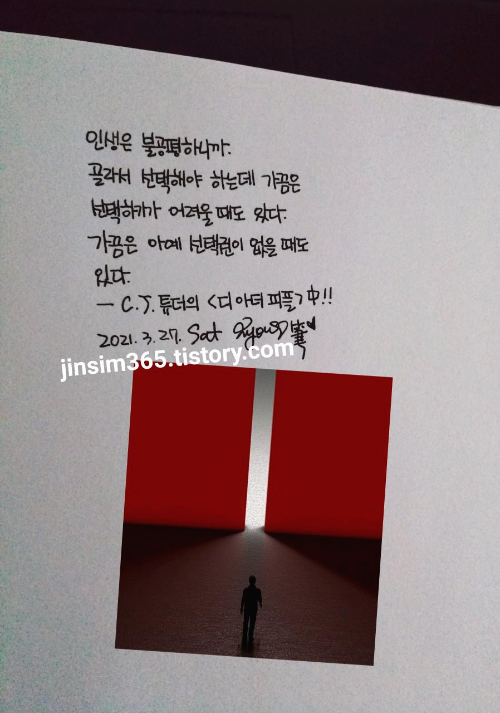 인생은 불공평하니까.
골라서 선택해야 하는데 가끔은
선택하기가 어려울 때도 있다.
가끔은 아예 선택권이 없을 때도
있다.
- C.J. 튜더의 <디 아더 피플> 中!!
2021. 3. 27. Sat
jinsim365.tistory.com